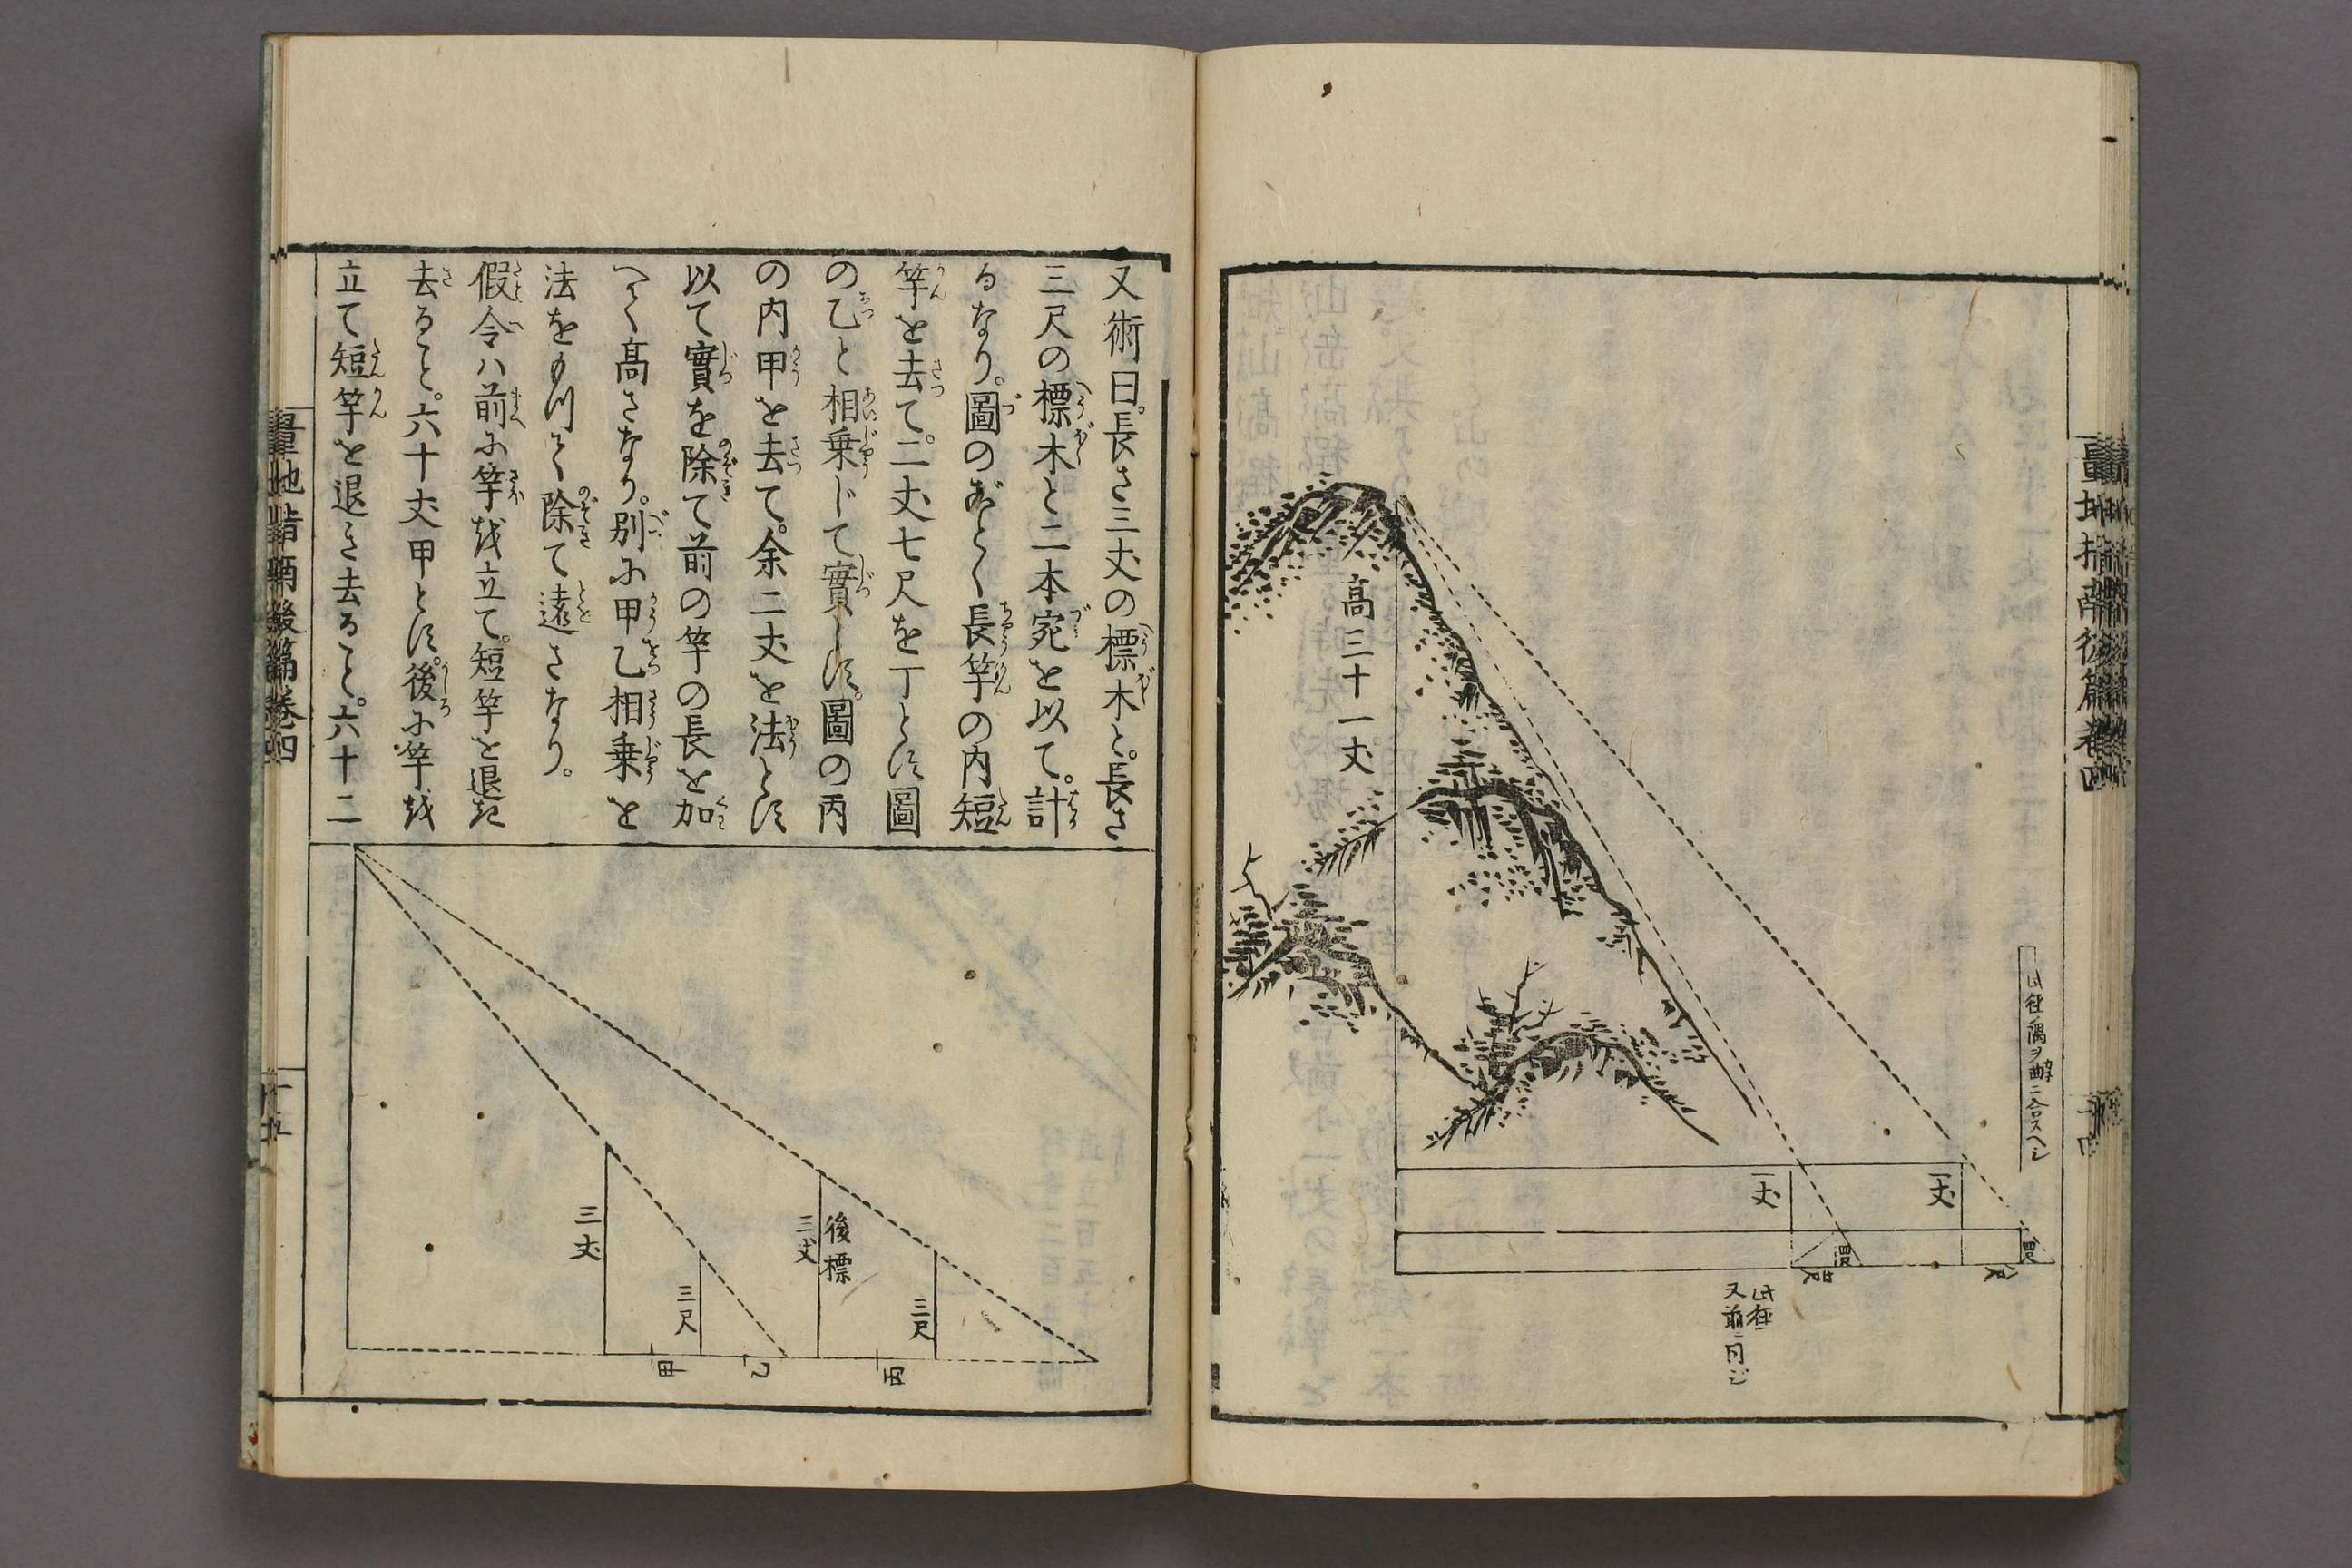 高三十一丈
一丈
一丈
四尺
四尺
八尺
此径
又前ニ同ジ
量地指南後篇卷四
又術曰。長さ三丈の標木と。長さ
三尺の標木と二本宛を以て。計
るなり。圖のごとく長竿の内短
竿を去て。二丈七尺を丁とす圖
の乙と相乗じて實とす。圖の丙
の内甲を去て。余二丈を法とす
以て實を除て前の竿の長を加
へく高さなり。別に甲乙相乗を
法をもつて除て遠さなり。
假令ハ前に竿を立て。短竿を退き
去ること。六十丈甲とす。後に竿を
立て短竿を退き去ること。六十二
三丈
三尺
後標
三丈
三尺
甲
乙
丙
量地指南後篇卷四
十五